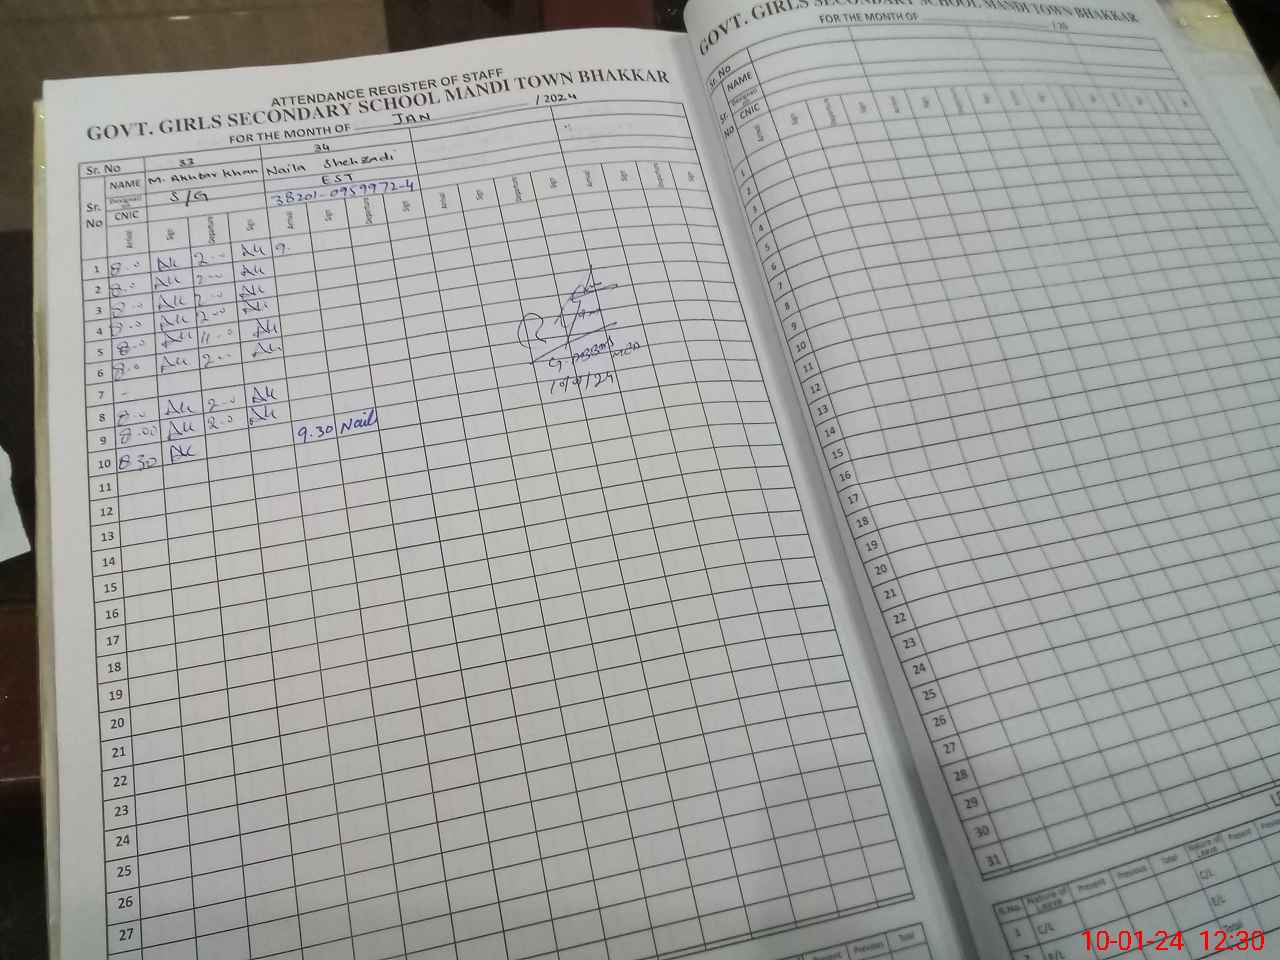 ATTENDANCE REGISTER OF STAFF
GOVT. GIRLS SECONDARY SCHOOL MANDI TOWN BHAKKAR
FOR THE MONTH OF JAN /2024
Sr. No 33 34
Sr. No NAME M. Akhtar Khan Naila Shehzadi
Designation S/G EST
CNIC 38201-0959972-4
Arrival Sign Departure Sign Arrival Sign Departure Sign Arrival Sign Departure Sign Arrival Sign Departure Sign
1 8.00 AK 2.00 AK 9.
2 8.00 AK 2.00 AK
3 8.00 AK 2.00 AK
4 8.00 AK 2.00 AK
5 8.00 AK 11.00 AK
6 8.00 AK 2.00 AK
7 -
8 8.00 AK 2.00 AK
9 8.00 AK 2.00 AK
10 830 AK 9.30 Nail
11
12
13
14
15
16
17
18
19
20
21
22
23
24
25
26
27
Previous Total
GOVT. GIRLS SECONDARY SCHOOL MANDI TOWN BHAKKAR
FOR THE MONTH OF /20
Sr. No
Sr. No NAME
Designation
CNIC
Arrival Sign Departure Sign Arrival Sign
1
2
3
4
5
6
7
8
9
10
11
12
13
14
15
16
17
18
19
20
21
22
23
24
25
26
27
28
29
30
31
S.No. Nature of Leave Present Previous Total Nature of Leave Present
1 C/L C/L
2 E/L E/L
Total
10-01-24 12:30